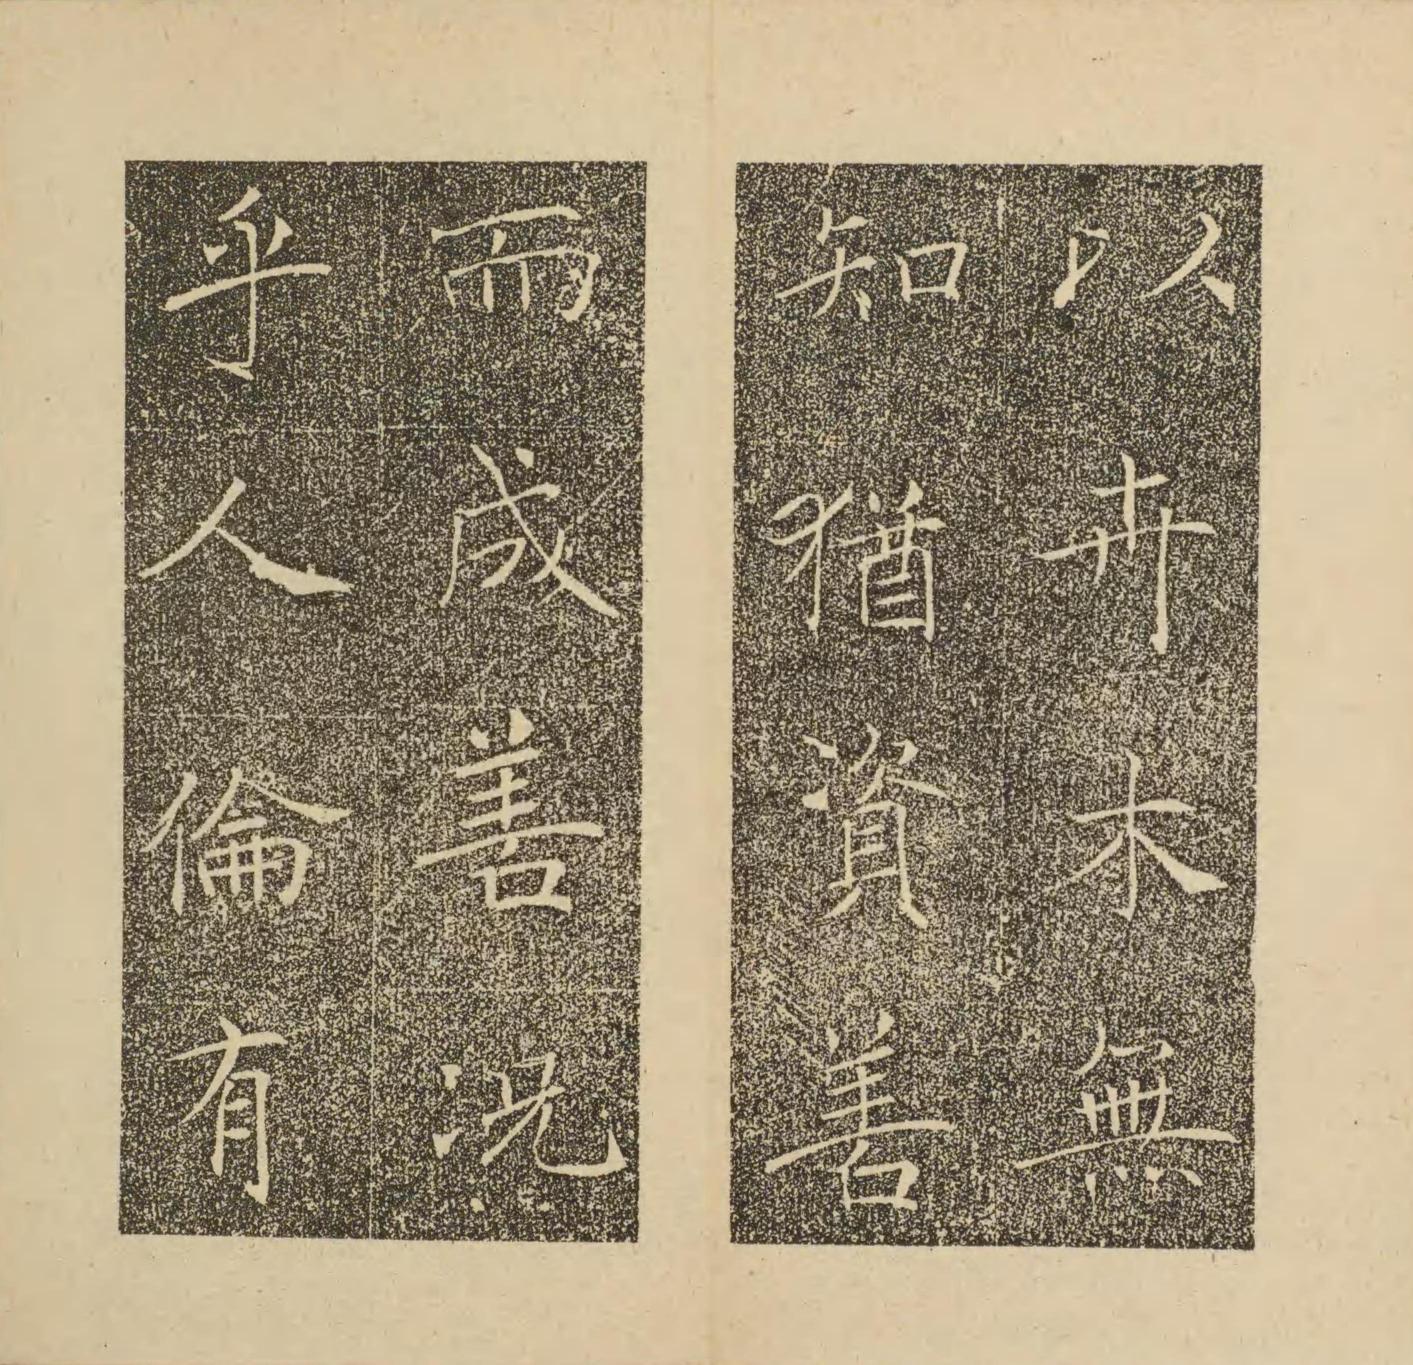 以卉木無
知猶資善
而成善況
乎人倫有